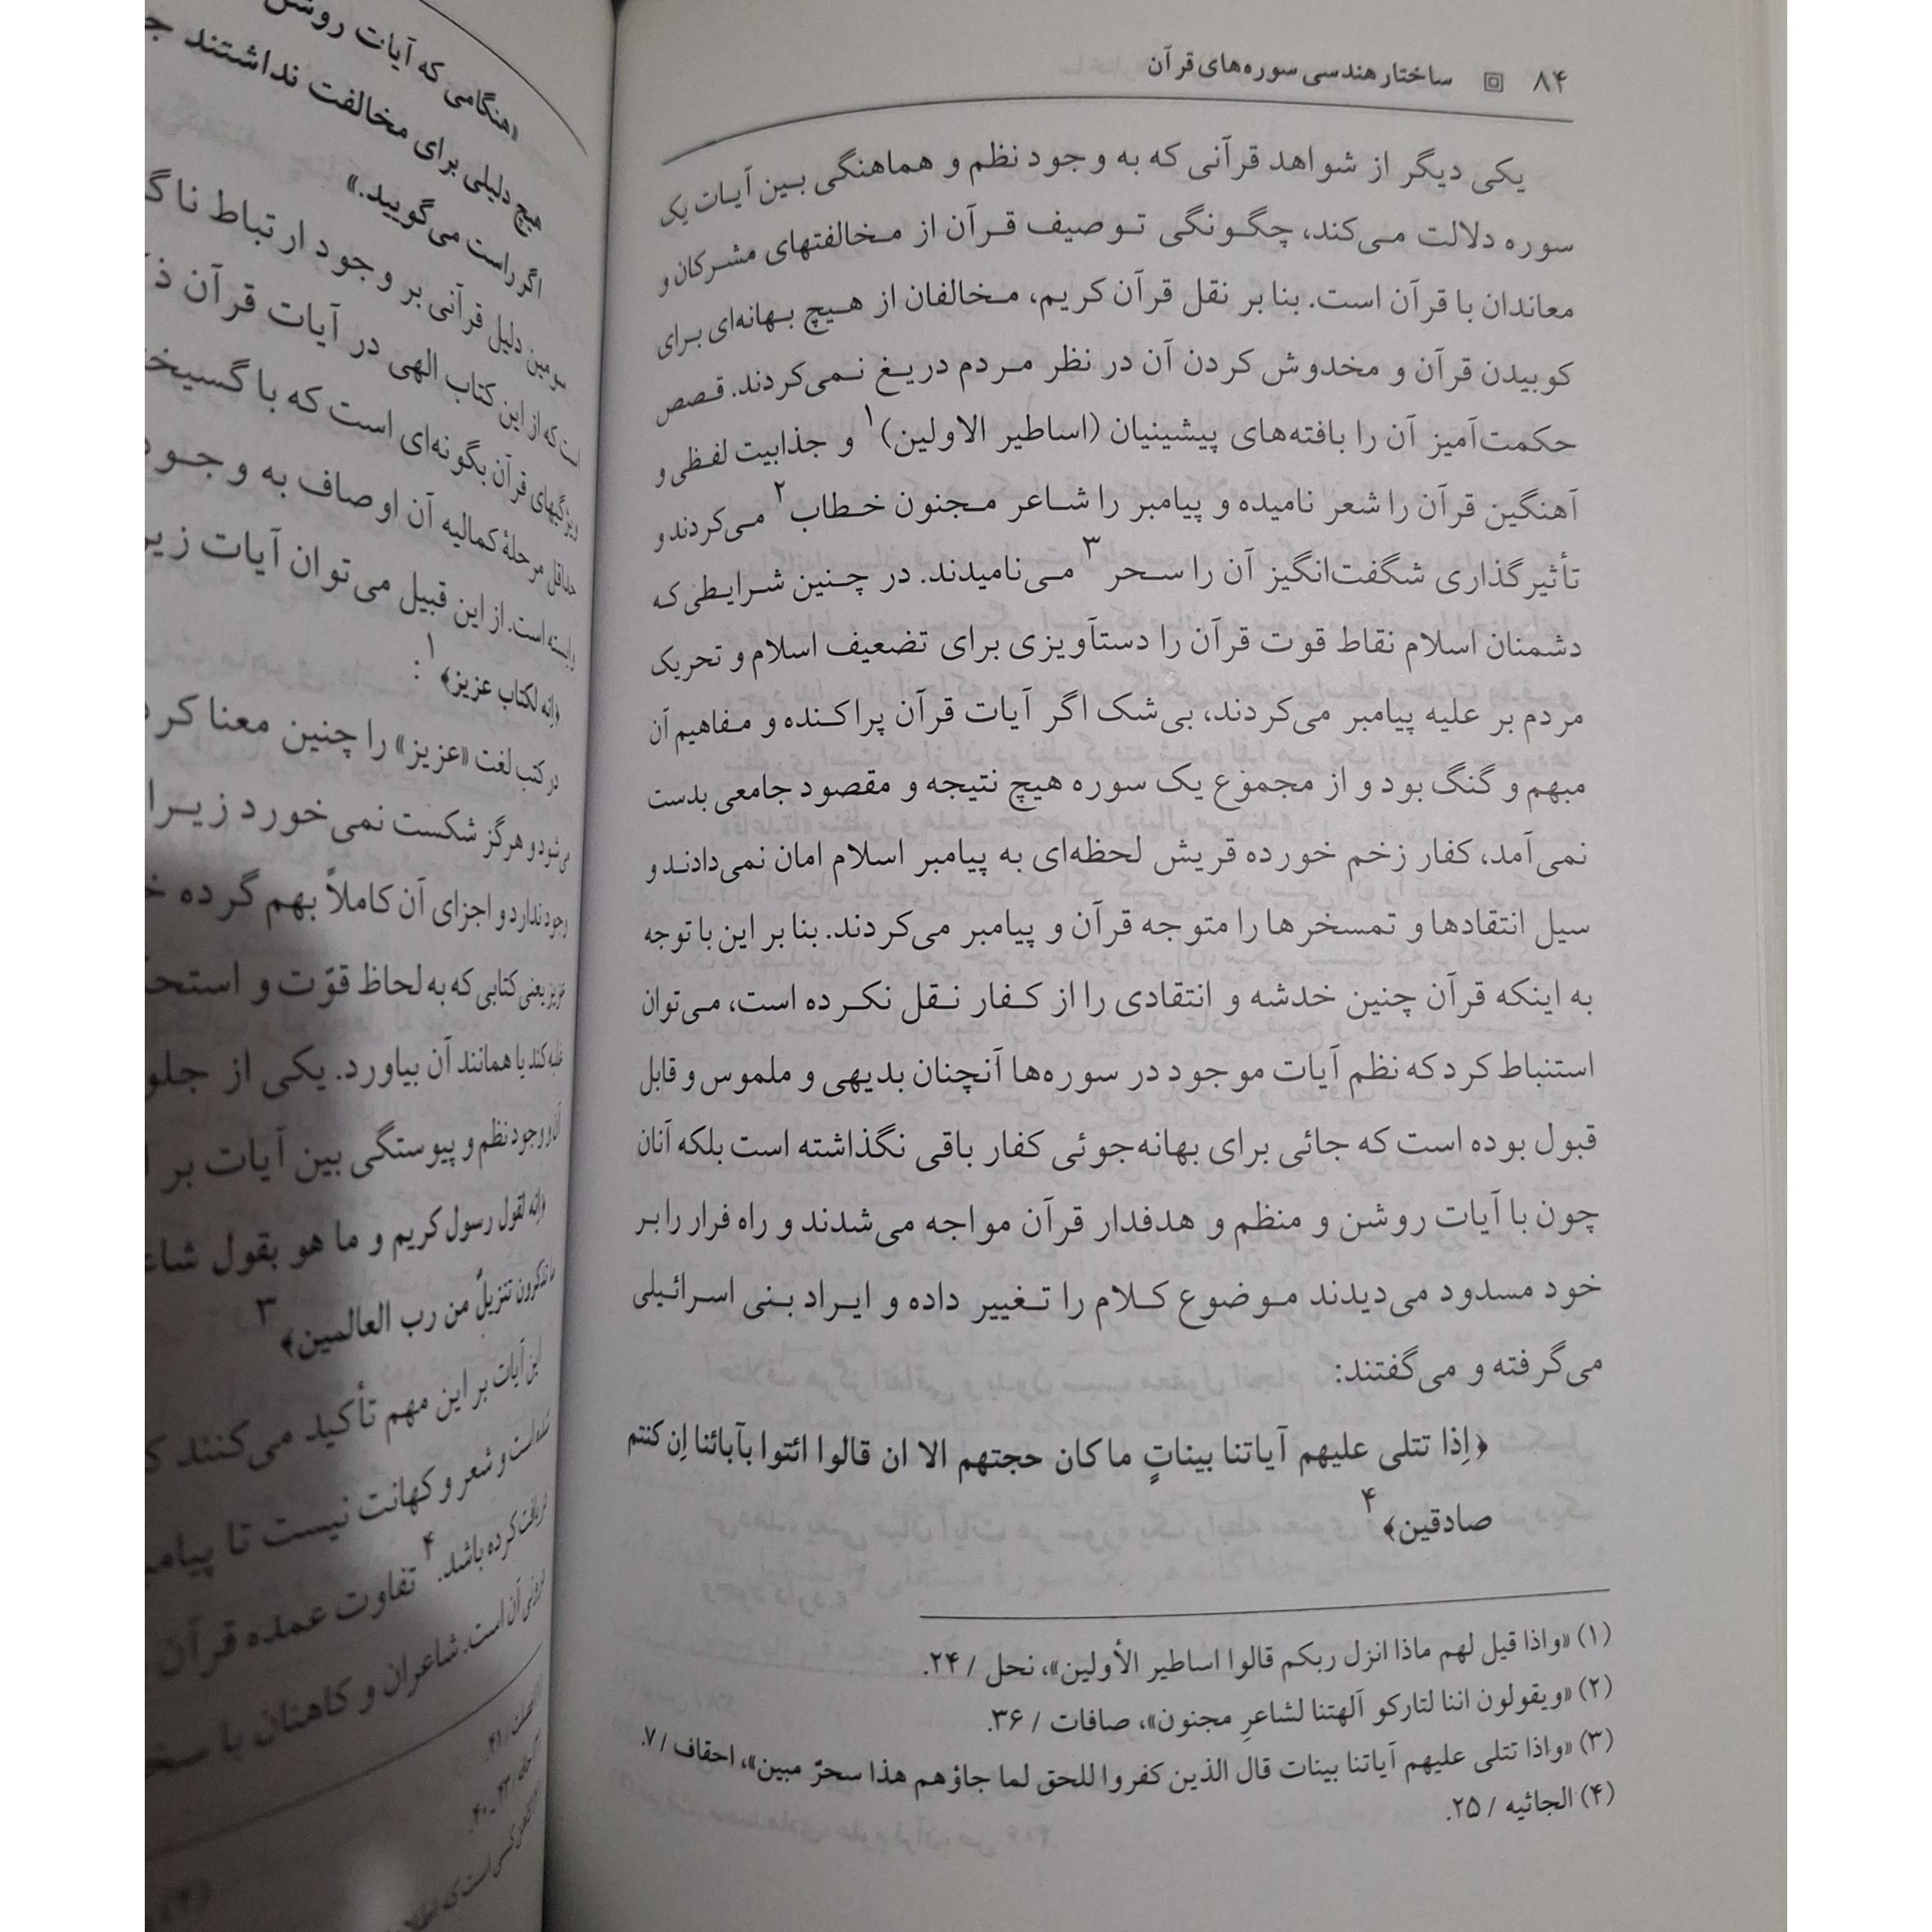 ۸۴ ساختار هندسی سوره‌های قرآن
یکی دیگر از شواهد قرآنی که به وجود نظم و هماهنگی بین آیات یک
سوره دلالت می‌کند، چگونگی توصیف قرآن از مخالفتهای مشرکان و
معاندان با قرآن است. بنا بر نقل قرآن کریم، مخالفان از هیچ بهانه‌ای برای
کوبیدن قرآن و مخدوش کردن آن در نظر مردم دریغ نمی‌کردند. قصص
حکمت‌آمیز آن را بافته‌های پیشینیان (اساطیر الاولین)۱ و جذابیت لفظی و
آهنگین قرآن را شعر نامیده و پیامبر را شاعر مجنون خطاب۲ می‌کردند و
تأثیرگذاری شگفت‌انگیز آن را سحر۳ می‌نامیدند. در چنین شرایطی که
دشمنان اسلام نقاط قوت قرآن را دستاویزی برای تضعیف اسلام و تحریک
مردم بر علیه پیامبر می‌کردند، بی‌شک اگر آیات قرآن پراکنده و مفاهیم آن
مبهم و گنگ بود و از مجموع یک سوره هیچ نتیجه و مقصود جامعی بدست
نمی‌آمد، کفار زخم خورده قریش لحظه‌ای به پیامبر اسلام امان نمی‌دادند و
سیل انتقادها و تمسخرها را متوجه قرآن و پیامبر می‌کردند. بنا بر این با توجه
به اینکه قرآن چنین خدشه و انتقادی را از کفار نقل نکرده است، می‌توان
استنباط کرد که نظم آیات موجود در سوره‌ها آنچنان بدیهی و ملموس و قابل
قبول بوده است که جائی برای بهانه‌جوئی کفار باقی نگذاشته است بلکه آنان
چون با آیات روشن و منظم و هدفدار قرآن مواجه می‌شدند و راه فرار را بر
خود مسدود می‌دیدند موضوع کلام را تغییر داده و ایراد بنی اسرائیلی
می‌گرفته و می‌گفتند:
﴿اِذا تتلی علیهم آیاتنا بیناتٍ ما کان حجتهم الا ان قالوا ائتوا بآبائنا اِن کنتم
صادقین﴾۴
(۱) «واذا قیل لهم ماذا انزل ربکم قالوا اساطیر الأولین»، نحل / ۲۴.
(۲) «ویقولون اننا لتارکو آلهتنا لشاعرِ مجنون»، صافات / ۳۶.
(۳) «واذا تتلی علیهم آیاتنا بینات قال الذین کفروا للحق لما جاؤهم هذا سحرٌ مبین»، احقاف / ۷.
(۴) الجاثیه / ۲۵.
«هنگامی که آیات
هیچ دلیلی برای مخالفت نداشتند
اگر راست می‌گویید.»
سومین دلیل قرآنی بر وجود ارتباط
است که از این کتاب الهی در آیات قرآن
ویژگیهای قرآن بگونه‌ای است که با
حداقل مرحلهٔ کمالیه آن اوصاف به
وابسته است. از این قبیل می‌توان آیات
﴿انه لکتاب عزیز﴾۱:
در کتب لغت «عزیز» را چنین معنا
می‌شود و هرگز شکست نمی‌خورد زیرا
وجود ندارد و اجزای آن کاملاً بهم گره
عزیز یعنی کتابی که به لحاظ قوّت و
غلبه کند یا همانند آن بیاورد. یکی از
آن و وجود نظم و پیوستگی بین آیات بر
﴿انه لقول رسول کریم و ما هو بقول
ما تذکرون تنزیلٌ من رب العالمین﴾۳
این آیات بر این مهم تأکید می‌کنند
است و شعر و کهانت نیست تا
دریافت کرده باشد.۴ تفاوت عمده قرآن
آن است. شاعران و کاهنان با